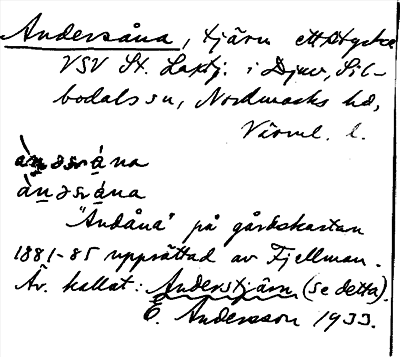 Andersåna, tjärn ett stycke
VSV St. Laxtj. i Djuv, Sil-
bodals sn, Nordmarks hd,
Värml. l.
àn̲əsrá̲na
àn̲əsrá̲na
"Andåna" på gårdskartan
1881-85 upprättad av Fjellman.
Äv. kallat: Anderstjärn (se detta).
E. Andersson 1933.